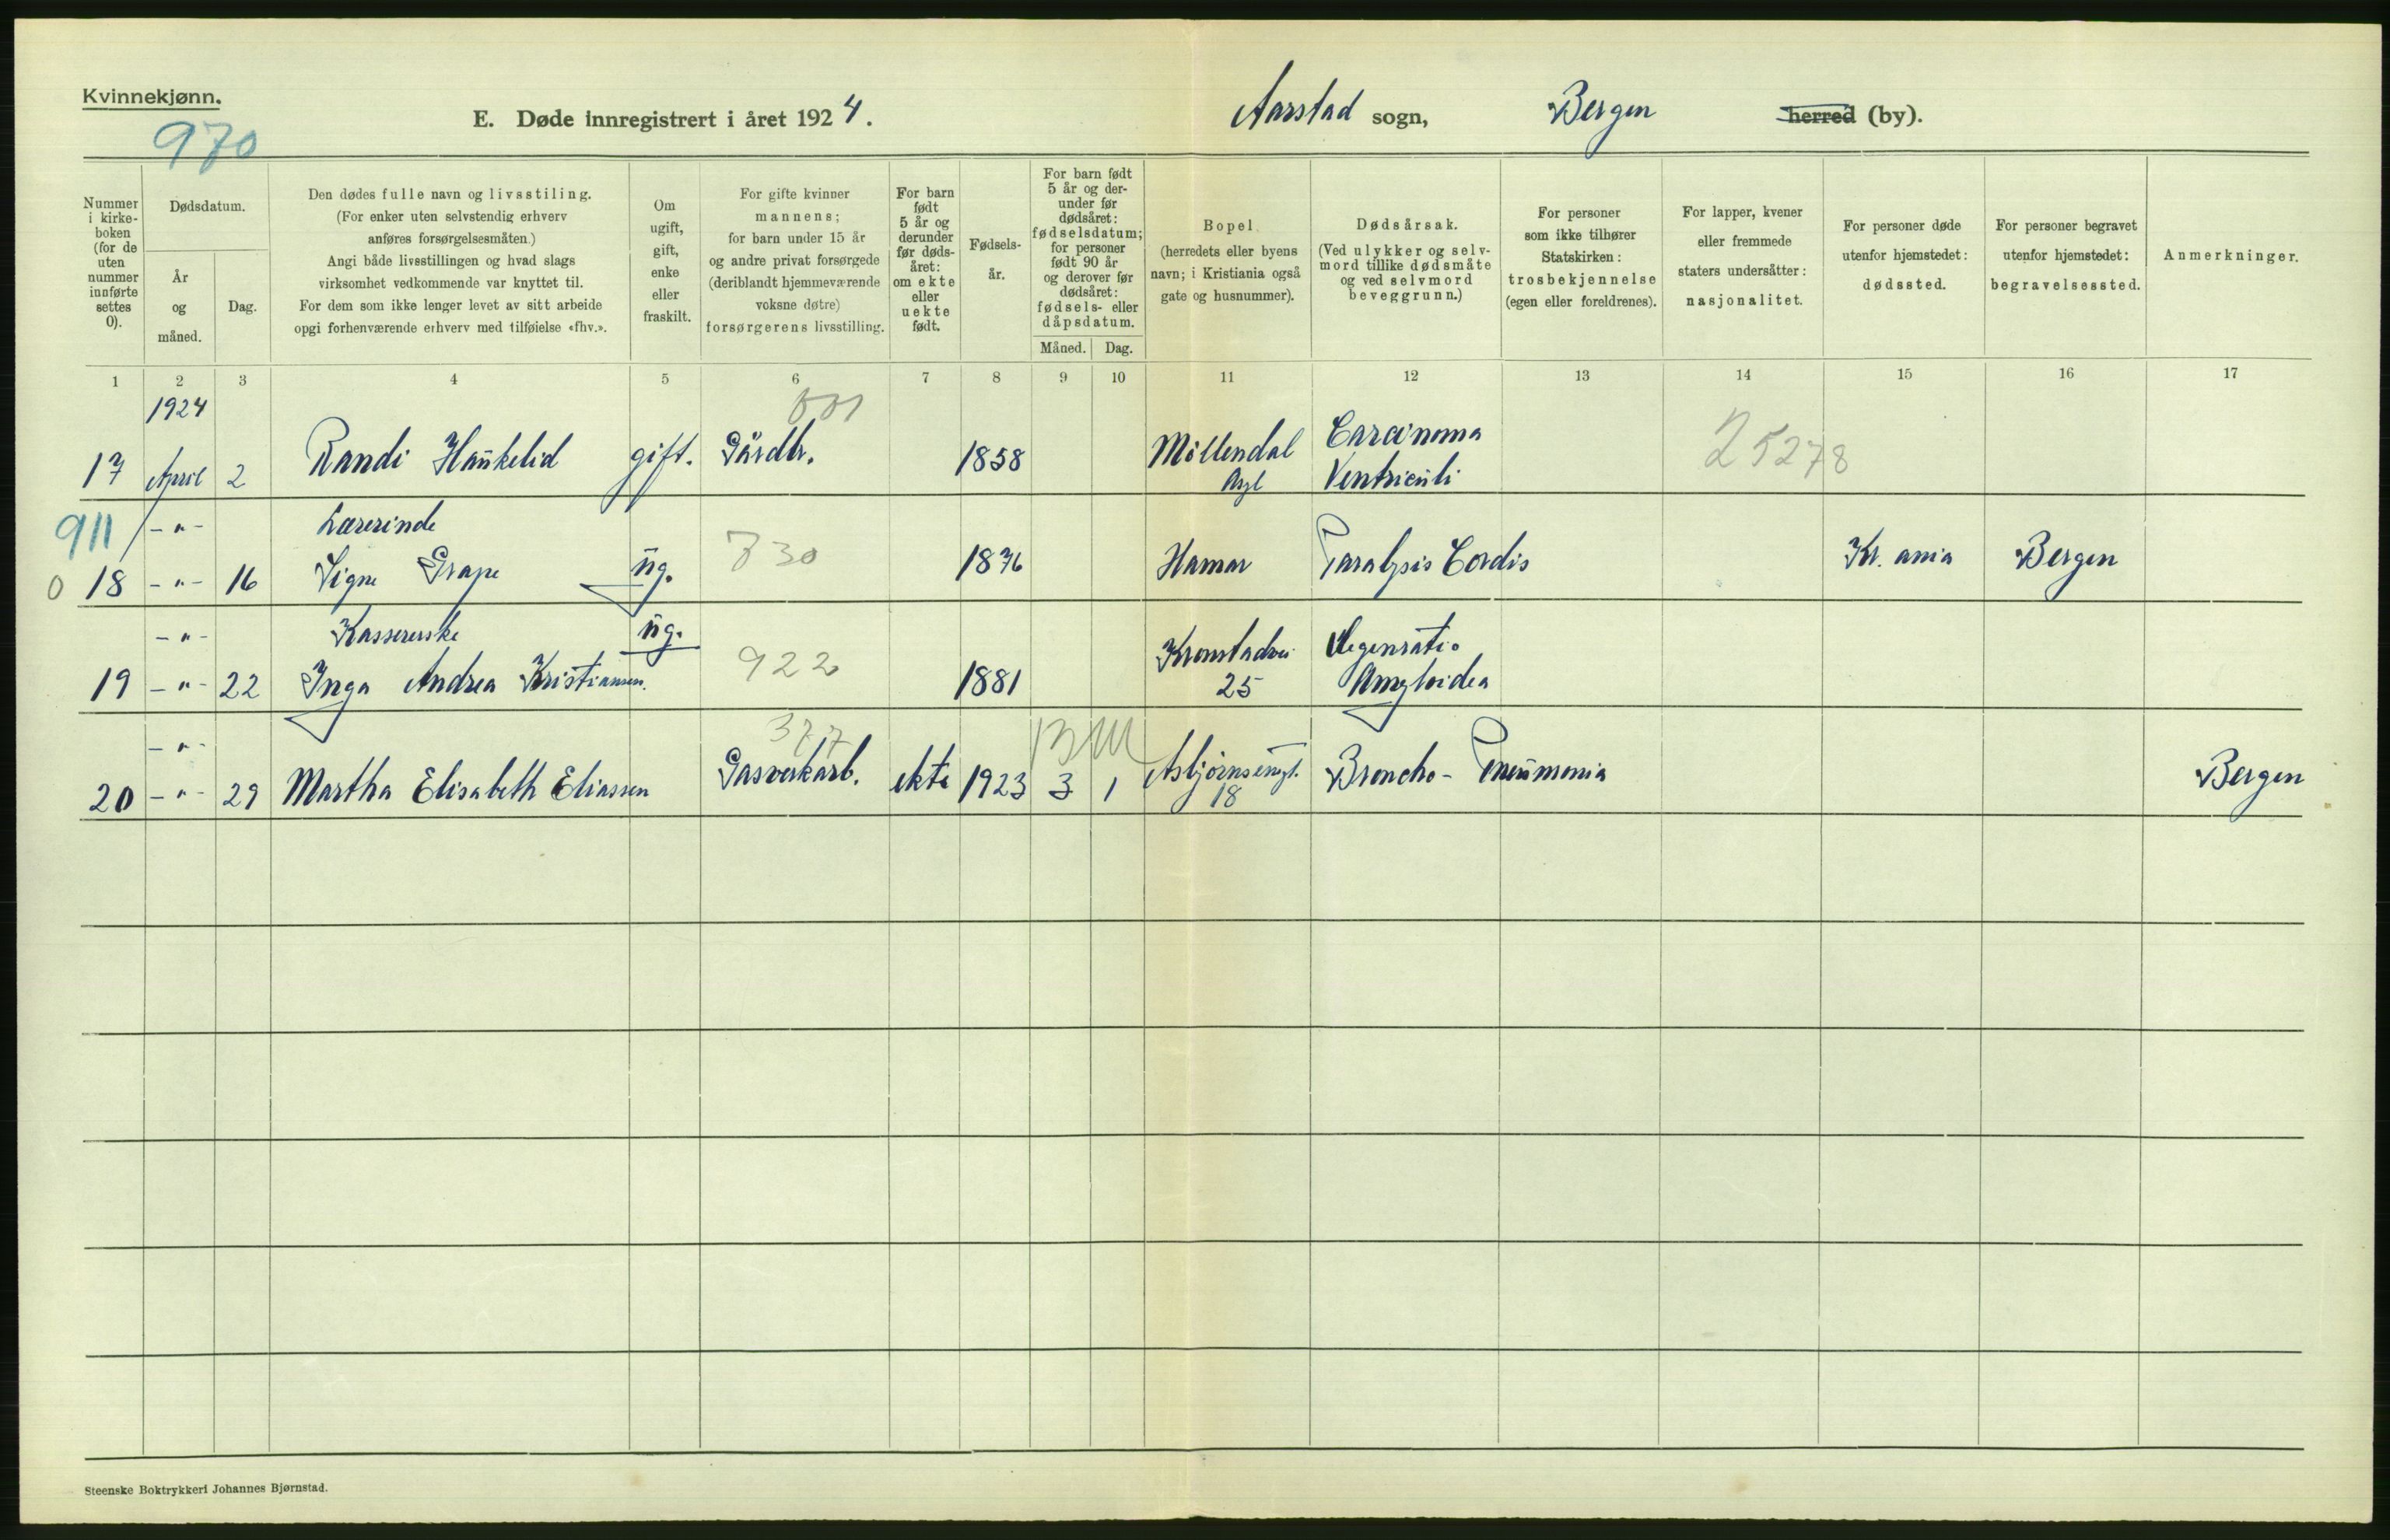 Kvinnekjønn.
970
E. Døde innregistrert i året 1924.
Aarstad sogn, Bergen herred (by).
Nummer i kirke-boken (for de uten nummer innførte settes 0).
Dødsdatum.
År og måned.
Dag.
Den dødes fulle navn og livsstiling.
(For enker uten selvstendig erhverv
anføres forsørgelsesmåten.)
Angi både livsstillingen og hvad slags
virksomhet vedkommende var knyttet til.
For dem som ikke lenger levet av sitt arbeide
opgi forhenværende erhverv med tilføielse «fhv.».
Om
ugift,
gift,
enke
eller
fraskilt.
For gifte kvinner
mannens;
for barn under 15 år
og andre privat forsørgede
(deriblandt hjemmeværende
voksne døtre)
forsørgerens livsstilling.
For barn
født
5 år og
derunder
før døds-
året:
om ekte
eller
uekte
født.
Fødsels-
år.
For barn født
5 år og der-
under før
dødsåret:
fødselsdatum;
for personer
født 90 år
og derover før
dødsåret:
fødsels- eller
dåpsdatum.
Måned. Dag.
Bopel
(herredets eller byens
navn; i Kristiania også
gate og husnummer).
Dødsårsak.
(Ved ulykker og selv-
mord tillike dødsmåte
og ved selvmord
beveggrunn.)
For personer
som ikke tilhører
Statskirken:
trosbekjennelse
(egen eller foreldrenes).
For lapper, kvener
eller fremmede
staters undersåtter:
nasjonalitet.
For personer døde
utenfor hjemstedet:
dødssted.
For personer begravet
utenfor hjemstedet:
begravelsessted.
Anmerkninger.
1 2 3 4 5 6 7 8 9 10 11 12 13 14 15 16 17
1924
17 April 2 Randi Haukelid gift. Gårdbr. 1858 Møllendal Carcinoma 25278
Ventriculi
911 -"- Lærerinde
0 18 -"- 16 Signe Grape ug. 830 1876 Hamar Paralysis Cordis Kr.ania Bergen
-"- Kassererske ug. Kronstadvei Degeneratio
19 -"- 22 Inga Andrea Kristiansen. 922 1881 25 Amyloidea
-"- 377
20 -"- 29 Martha Elisabeth Eliassen Gasverkarb. ekte 1923 3 1 Asbjørnsengt. Broncho-Pneumonia Bergen
18
Steenske Boktrykkeri Johannes Bjørnstad.